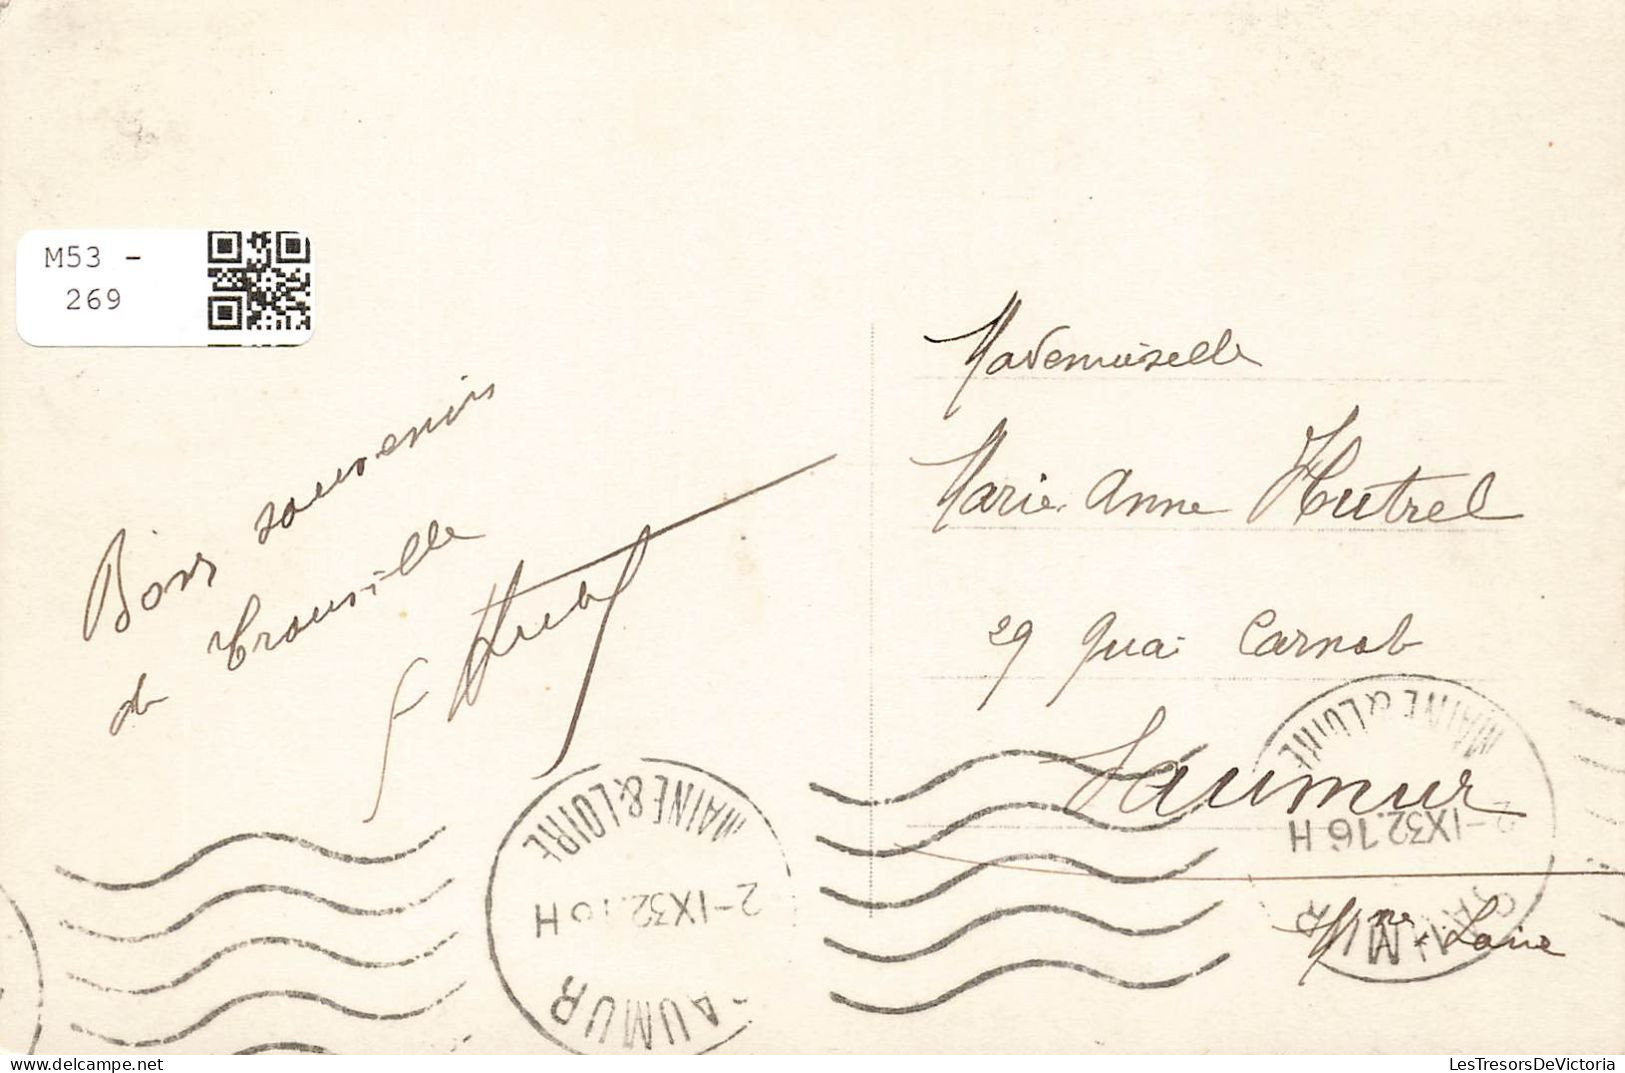 M53 -
269
Bons souvenirs
de Trouville
Mademoiselle
Marie Anne Hutrel
29 Quai Carnot
Saumur
Mne & Loire
MAINE & LOIRE
2-IX32.16H
SAUMUR
MAINE & LOIRE
2-IX32.16H
SAUMUR
delcampe.net
LesTresorsDeVictoria